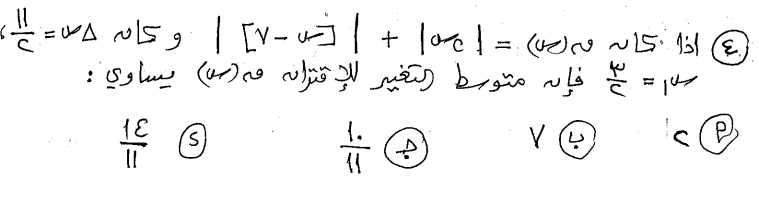 ٤) اذا كان ق(س) = |٢س| + |[س - ٧]| و كان Δس = ١١/٢ ،
س١ = ٣/٢ فإن متوسط التغير للإقتران ق(س) يساوي :
أ) ٢    ب) ٧    ج) ١٠/١١    د) ١٤/١١